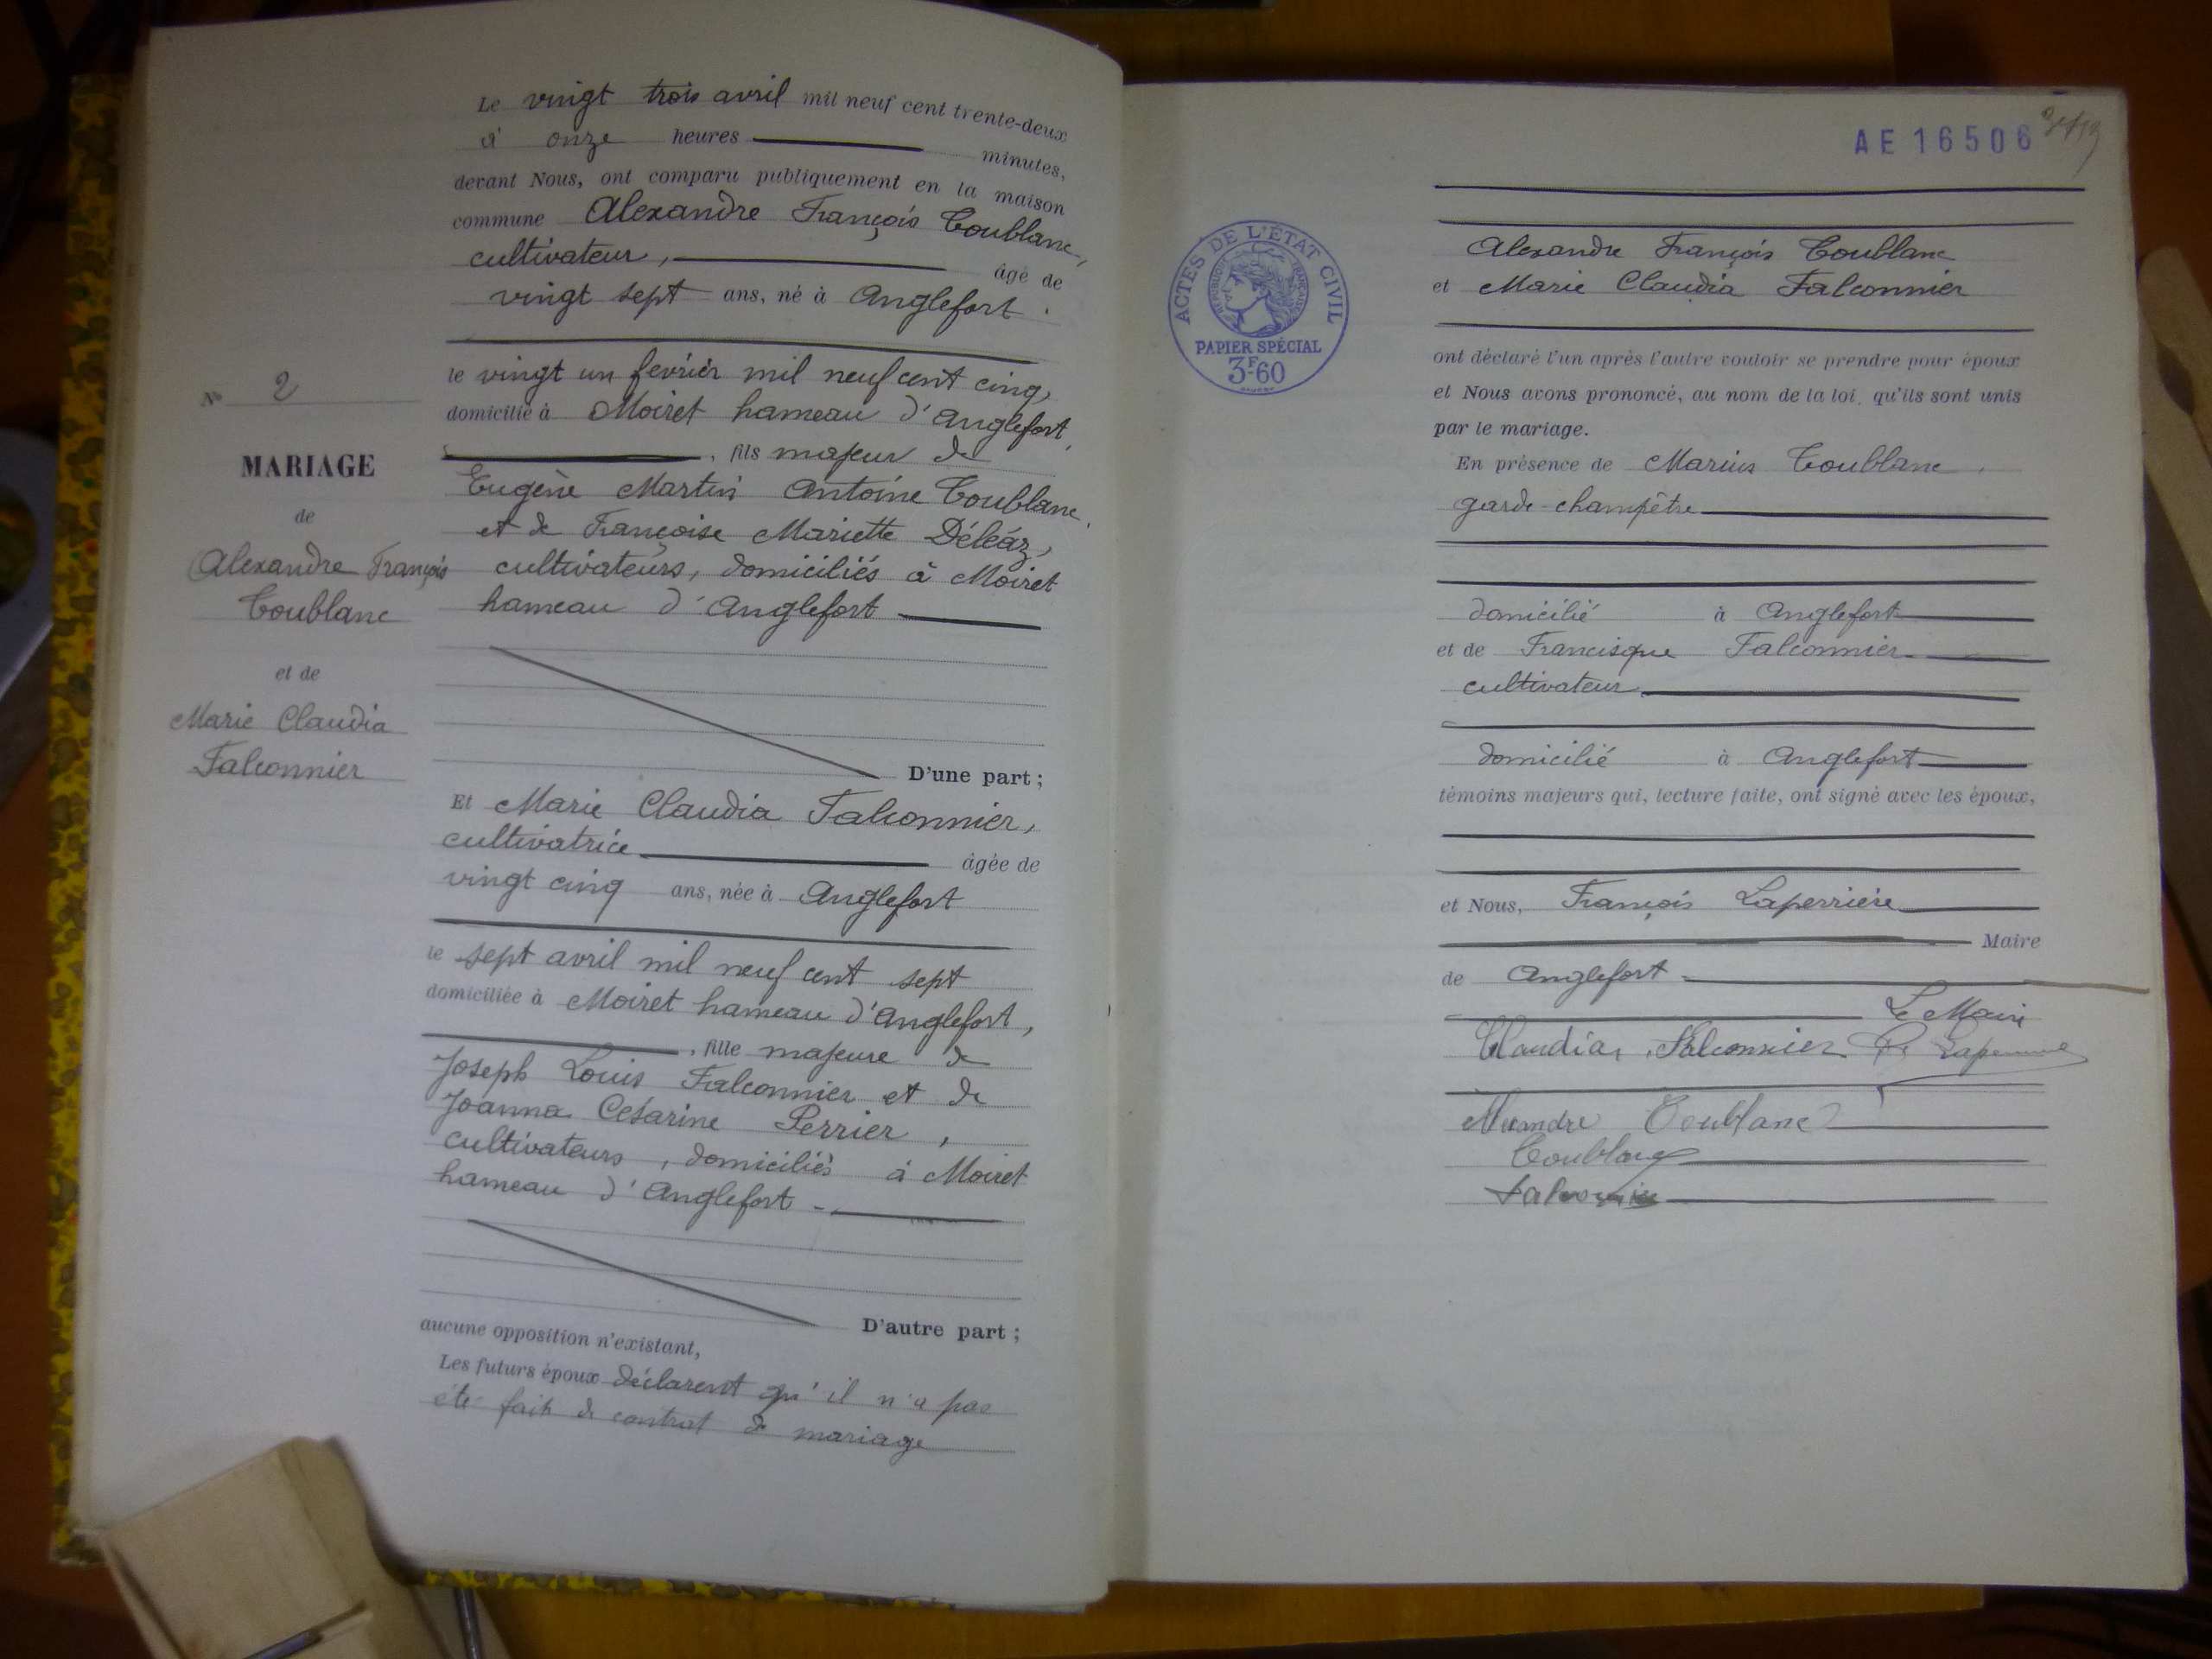 Le vingt trois avril mil neuf cent trente-deux
à onze heures minutes,
devant Nous, ont comparu publiquement en la maison
commune Alexandre François Toublanc,
cultivateur, âgé de
vingt sept ans, né à Anglefort.
le vingt un février mil neuf cent cinq,
domicilié à Moiret hameau d'Anglefort,
, fils majeur de
Eugène Martin Antoine Toublanc,
et de Françoise Mariette Déléaz,
cultivateurs, domiciliés à Moiret
hameau d'Anglefort
D'une part ;
Et Marie Claudia Falconnier,
cultivatrice âgée de
vingt cinq ans, née à Anglefort
le sept avril mil neuf cent sept
domiciliée à Moiret hameau d'Anglefort,
, fille majeure de
Joseph Louis Falconnier et de
Joanna Césarine Perrier,
cultivateurs, domiciliés à Moiret
hameau d'Anglefort -
D'autre part ;
aucune opposition n'existant,
Les futurs époux déclarent qu'il n'a pas
été fait de contrat de mariage
N° 2
MARIAGE
de
Alexandre François
Toublanc
et de
Marie Claudia
Falconnier
AE 16506
ACTES DE L'ÉTAT CIVIL
RÉPUBLIQUE FRANÇAISE
PAPIER SPÉCIAL
3F60
Alexandre François Toublanc
et Marie Claudia Falconnier
ont déclaré l'un après l'autre vouloir se prendre pour époux
et Nous avons prononcé, au nom de la loi, qu'ils sont unis
par le mariage.
En présence de Marius Toublanc,
garde-champêtre
domicilié à Anglefort
et de Francisque Falconnier
cultivateur
domicilié à Anglefort
témoins majeurs qui, lecture faite, ont signé avec les époux,
et Nous, François Laperrière
Maire
de Anglefort
Le Maire
Claudia Falconnier Laperrière
Alexandre Toublanc
Toublanc
Falconnier